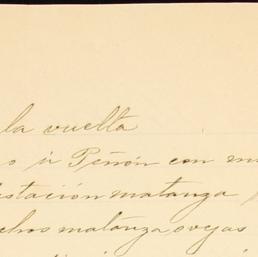 la vuelta
o ir Peñón con
estación matanza
chos matanza ovejas